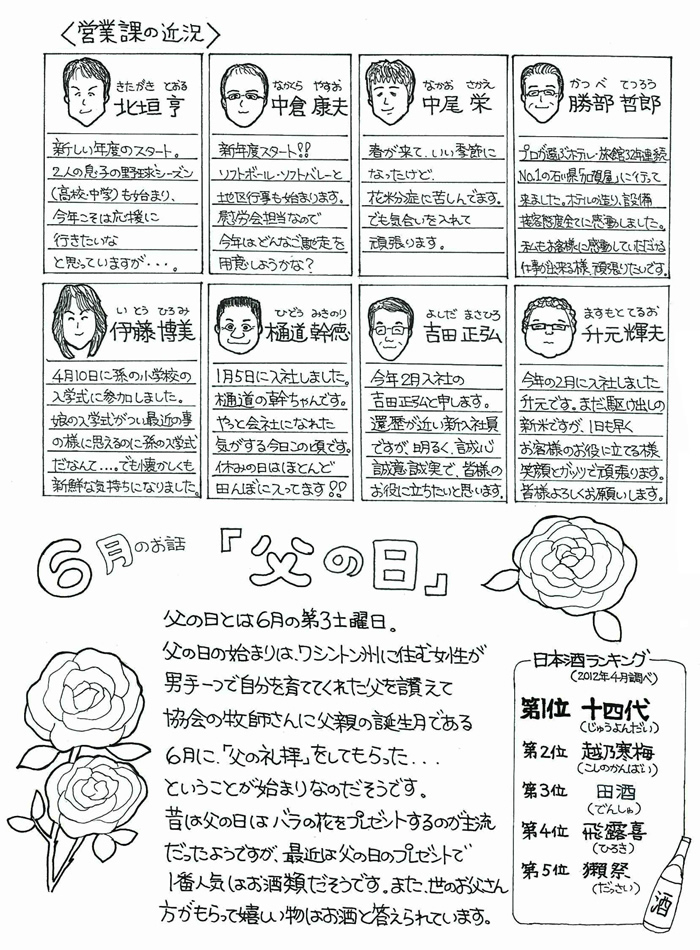 〈営業課の近況〉
きたがき とおる
北垣 亨
新しい年度のスタート。
2人の息子の野球シーズン
(高校・中学)も始まり、
今年こそは応援に
行きたいな
と思っていますが・・・。
なかくら やすお
中倉 康夫
新年度スタート!!
ソフトボール・ソフトバレーと
地区行事も始まります。
慰労会担当なので
今年はどんなご馳走を
用意しようかな?
なかお さかえ
中尾 栄
春が来て、いい季節に
なったけど、
花粉症に苦しんでます。
でも気合いを入れて
頑張ります。
かつべ てつろう
勝部 哲郎
プロが選ぶホテル・旅館32年連続
No.1の石川県「加賀屋」に行って
来ました。ホテルの造り、設備
接客態度全てに感動しました。
私もお客様に感動していただける
仕事が出来る様、頑張りたいです。
いとう ひろみ
伊藤 博美
4月10日に孫の小学校の
入学式に参加しました。
娘の入学式がつい最近の事
の様に思えるのに孫の入学式
だなんて・・・。でも懐かしくも
新鮮な気持ちになりました。
ひどう みきのり
樋道 幹徳
1月5日に入社しました。
樋道の幹ちゃんです。
やっと会社になれた
気がする今日この頃です。
休みの日はほとんど
田んぼに入ってます!!
よしだ まさひろ
吉田 正弘
今年2月入社の
吉田正弘と申します。
還暦が近い新入社員
ですが、明るく、誠心
誠意誠実で、皆様の
お役に立ちたいと思います。
ますもと てるお
升元 輝夫
今年の2月に入社しました
升元です。まだ駆け出しの
新米ですが、1日も早く
お客様のお役に立てる様
笑顔とガッツで頑張ります。
皆様よろしくお願いします。
6月のお話 『父の日』
父の日とは6月の第3土曜日。
父の日の始まりは、ワシントン州に住む女性が
男手一つで自分を育ててくれた父を讃えて
協会の牧師さんに父親の誕生月である
6月に、「父の礼拝」をしてもらった・・・
ということが始まりなのだそうです。
昔は父の日はバラの花をプレゼントするのが主流
だったようですが、最近は父の日のプレゼントで
1番人気はお酒類だそうです。また、世のお父さん
方がもらって嬉しい物はお酒と答えられています。
日本酒ランキング
(2012年4月調べ)
第1位 十四代
(じゅうよんだい)
第2位 越乃寒梅
(こしのかんばい)
第3位 田酒
(でんしゅ)
第4位 飛露喜
(ひろき)
第5位 獺祭
(だっさい)
酒